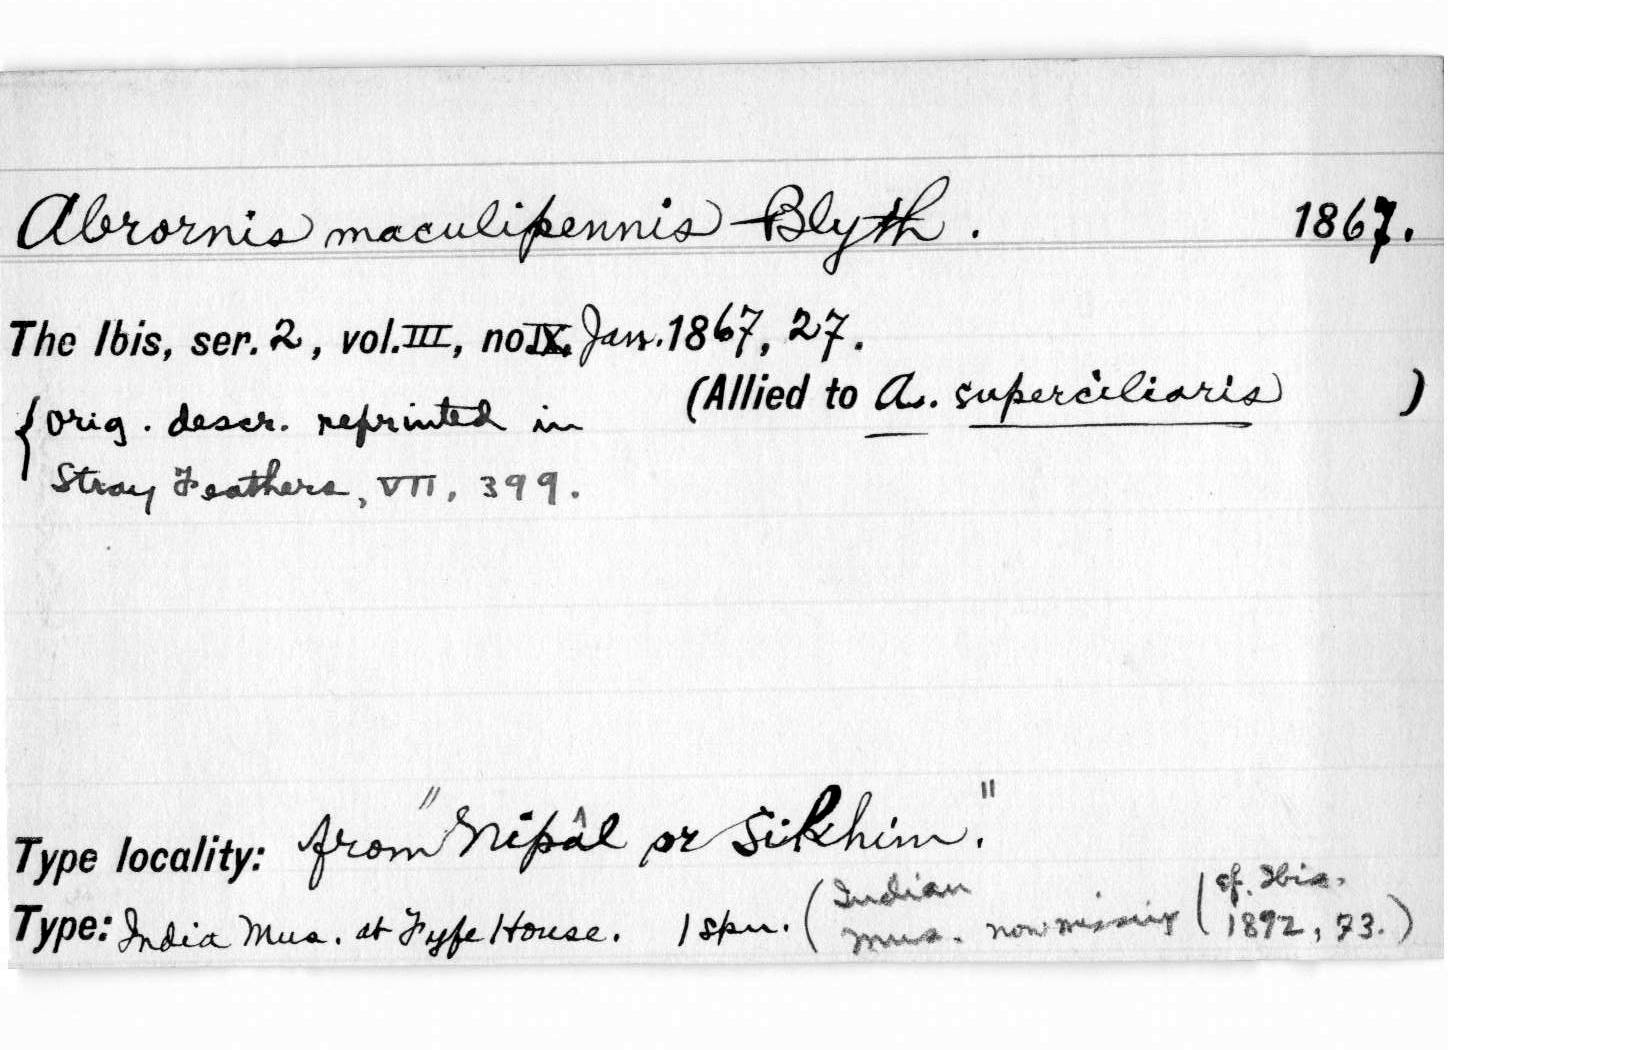 Abrornis maculipennis Blyth. 1867.
The Ibis, ser. 2, vol. III, no IX. Jan. 1867, 27.
(Allied to A. superciliaris )
{Orig. descr. reprinted in
Stray Feathers, VII, 399.
Type locality: from "Nipâl or Sikhim."
Type: India Mus. at Fyfe House. 1 spn. (Indian Mus. now missing (cf. Ibis. 1892, 73.)